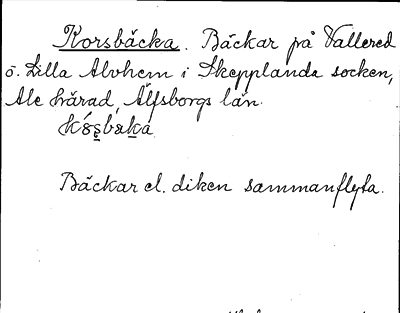 Korsbäcka. Bäckar på Vallered
o. Lilla Alvhem i Skepplanda socken,
Ale härad, Älfsborgs län.
Bäckar el. diken sammanflyta.